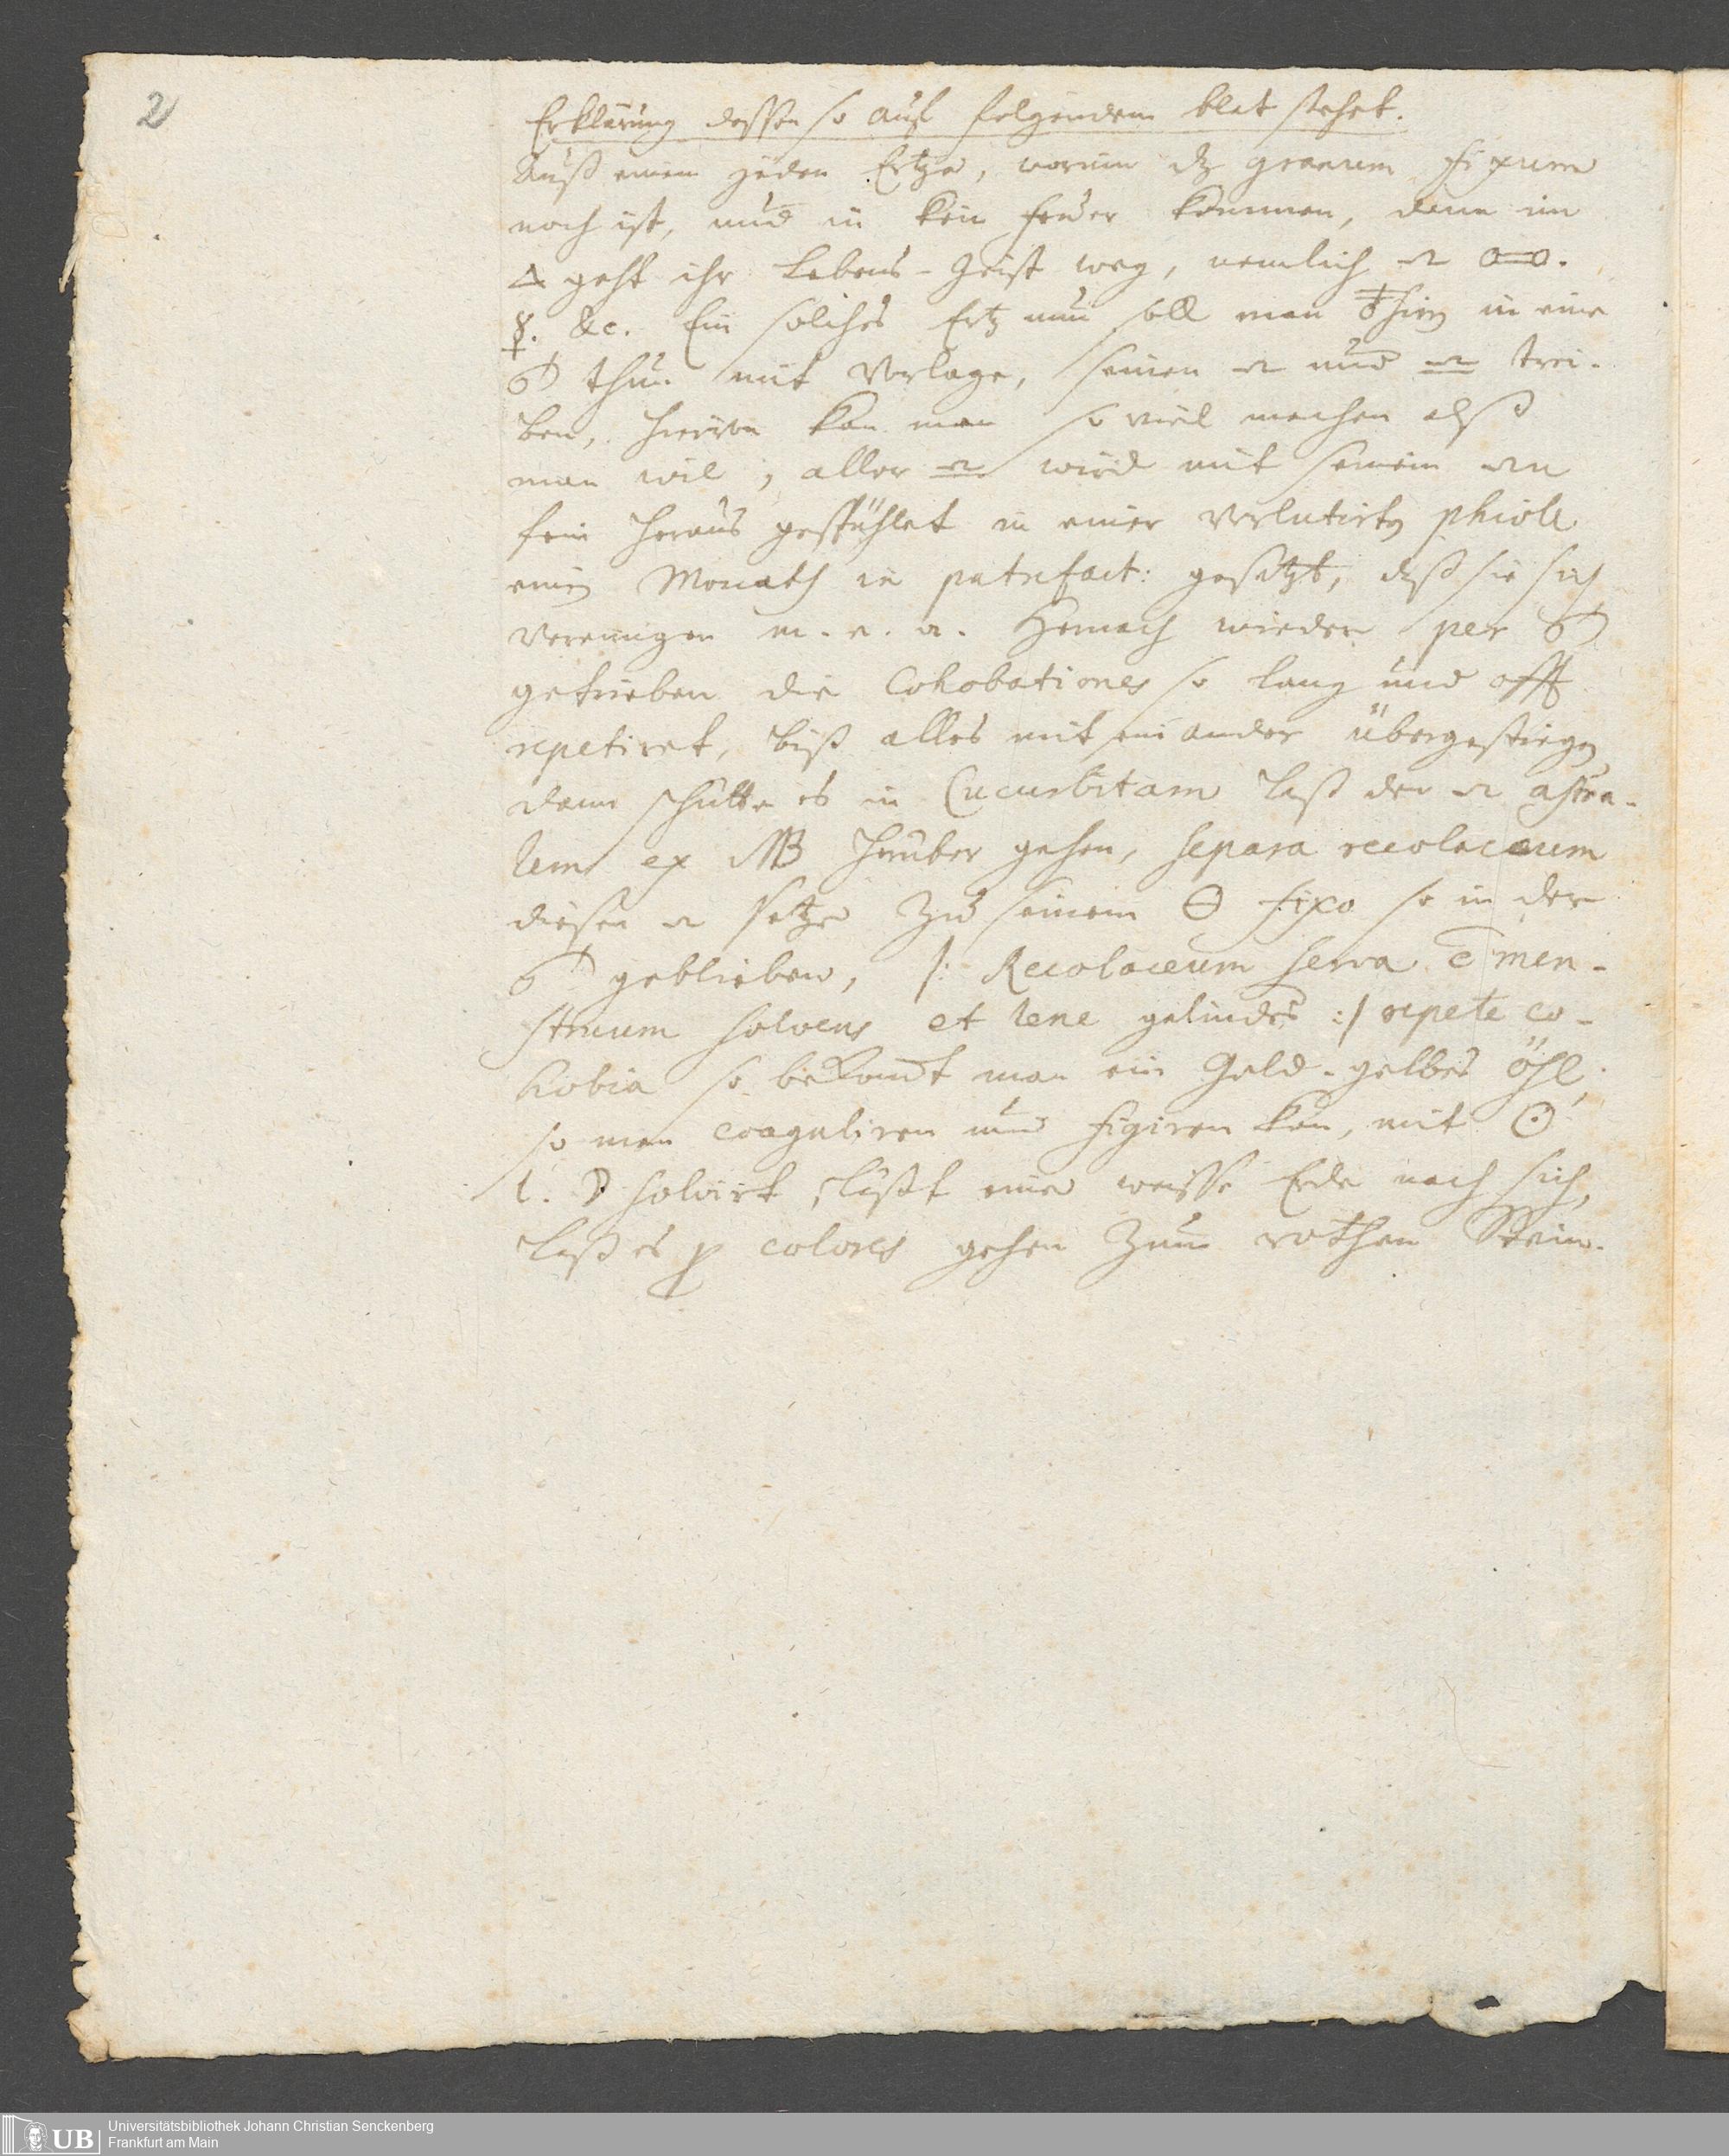 2
Erklärung dessen so auf folgendem blat stehet.
Auß einem jeden Ertze, worinn dz granum fixum
noch ist, und in kein feuer kommen, denn im
🜂 geht ihr Lebens-Geist weg, nemlich
☿. &c. Ein solches Ertz nun soll man in eine
thun mit Vorlage, seinen und trei-
ben, hiervon kan man so viel machen alß
man wil, aller wird mit seinem
fein heraus gespühlet in einer verlutirten phiole
einen Monath in putrefact: gesetzt, daß sie sich
vereinigen m. e. a. Hernach wieder per
getrieben die Cohobationes so lang und offt
repetiret, biß alles mit einander übergestiegen,
dann schütte es in Cucurbitam laß den astra-
lem ex MB herüber gehen, separa recolaceum
diesen setze zu seinem 🜔 fixo so in der
geblieben, /: Recolaceum serva c̄ men-
struum solvens et lene gelindes :/ repete co-
hobia so bekomt man ein Gold-gelbes öhl,
so man coaguliren und figiren kan, mit ☉
l. ☽ solvirt, läßt eine weisse Erde nach sich,
laß es p colores gehen zum rothen Stein.
UB
Universitätsbibliothek Johann Christian Senckenberg
Frankfurt am Main